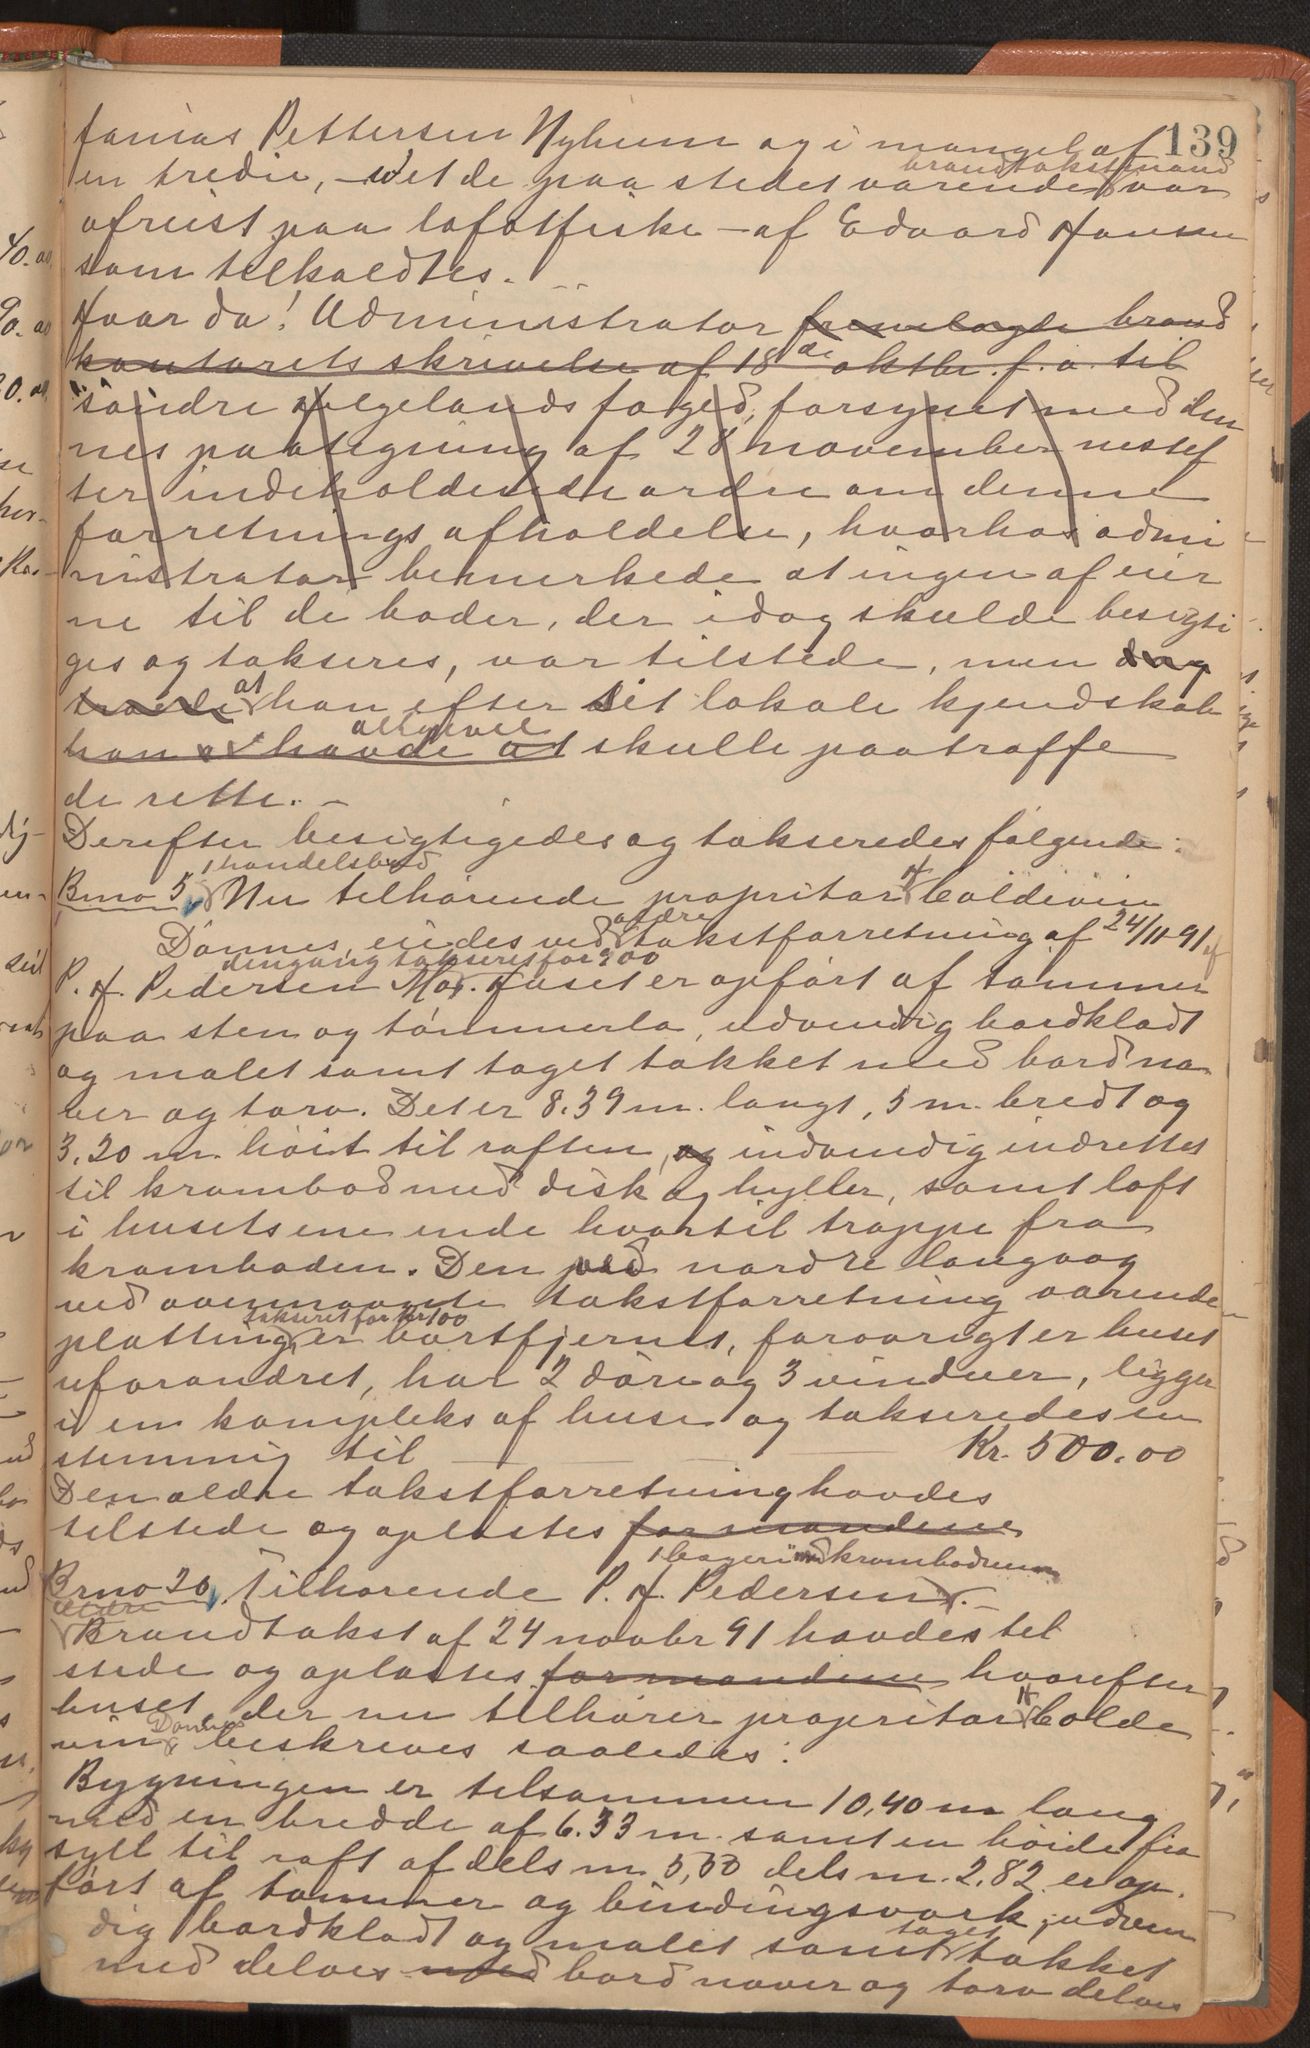 139
Janias Pettersen Nyheim og i mangel af
en tredie, – idet de paa stedet værende brandtakstmænd var
afreist paa lofotfiske – af Edvard Hansen
som tilkaldtes.
Hvor da! Administrator fremlagde brand
kontorets skrivelse af 18de oktbr. f. a. til
söndre Helgelands foged, forsynet med den
nes paategning af 28 november nestef
ter indeholdende ordre om denne
forretnings afholdelse, hvorhos admi
nistrator bemerkede at ingen af eier
ne til de boder, der idag skulde besigti
ges og takseres, var tilstede, men
at han efter sit lokale kjendskab
han havde at alligevel skulle paatræffe
de rette. –
Derefter besigtigedes og takseredes fölgende:
Bmo 5, 1 handelsbod Nu tilhörende propritær H Coldevin
Dönnes, eiedes ved ældre takstforretning af 24/11 91 af
P. H. Pedersen dengang takseret for 900 Huset er opfört af tömmer
paa sten og tömmerla, udvendig bordklædt
og malet samt taget tækket med bord næ
ver og torv. Det er 8.39 m. langt, 5 m. bredt og
3.20 m. höit til raften, og indvendig indrettet
til krambod med disk og hyller, samt loft
i husets ene ende hvortil trappe fra
kramboden. Den ved nordre langvæg
ved ovennævnte takstforretning værende
platting, takseret for kr 100 er bortfjernet, forövrigt er huset
uforandret, har 2 döre og 3 vinduer, ligger
i en kompleks af huse og takseredes en
stemmig til Kr. 500.00
Den ældre takstforretning havdes
tilstede og oplæstes for mændene
Bmo 20, Tilhörende P. H. Pedersen. 1 bageri med krambodrum –
Ældre Brandtakst af 24 novbr 91 havdes til
stede og oplæstes for mændene hvorefter
huset, der nu tilhörer propritær H Colde
vin Dönnes beskrives saaledes:
Bygningen er tilsammen 10,40 m lang
med en bredde af 6.33 m. samt en höide fra
syll til raft af dels m. 5,50 dels m. 2.82. er op-
fört af tömmer og bindingsverk, udven
dig bordklædt og malet samt taget tækket
med delvis med bord næver og torv delvis